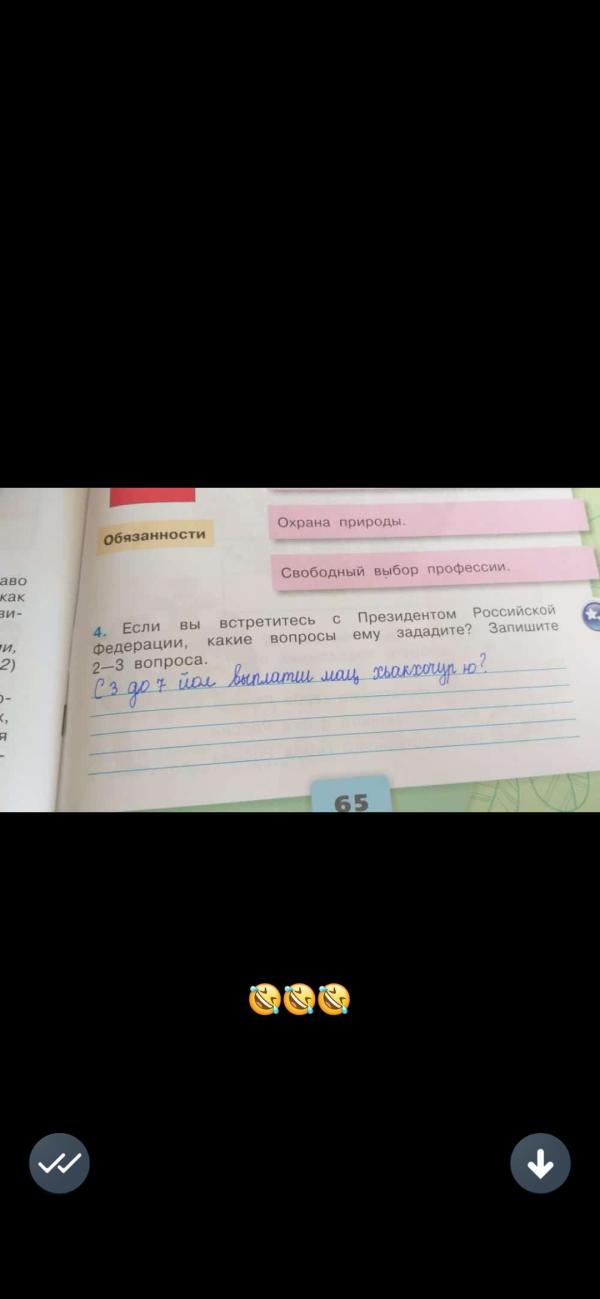 Охрана природы.
Обязанности
Свободный выбор профессии.
аво
как
ви-
ии,
2)
о-
х,
я
4. Если вы встретитесь с Президентом Российской
Федерации, какие вопросы ему зададите? Запишите
2—3 вопроса.
С 3 до 7 йол выплатш мац хьакхочур ю?
65
🤣🤣🤣